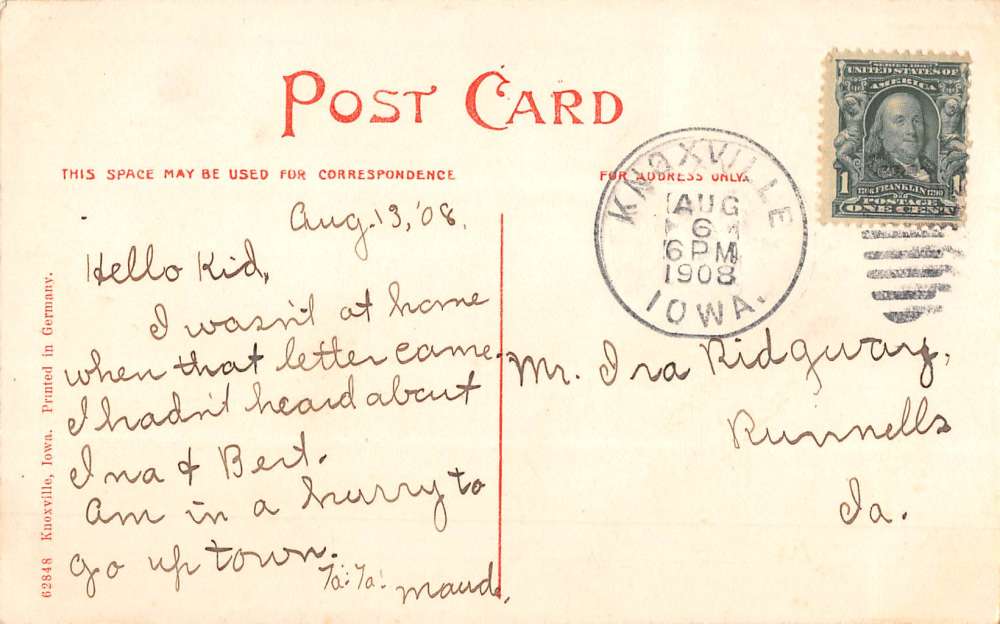 POST CARD
THIS SPACE MAY BE USED FOR CORRESPONDENCE
FOR ADDRESS ONLY.
Aug. 13, '08.
Hello Kid,
I wasn't at home
when that letter came.
I hadn't heard about
Ina & Bert.
Am in a hurry to
go up town.
Ta: Ta!
Maude.
62848 Knoxville, Iowa. Printed in Germany.
KNOXVILLE
AUG
6
6 PM
1908
IOWA.
SERIES 1902
UNITED STATES OF
AMERICA
1
1706 FRANKLIN 1790
POSTAGE
ONE CENT
Mr. Ira Ridgway,
Runnells
Ia.